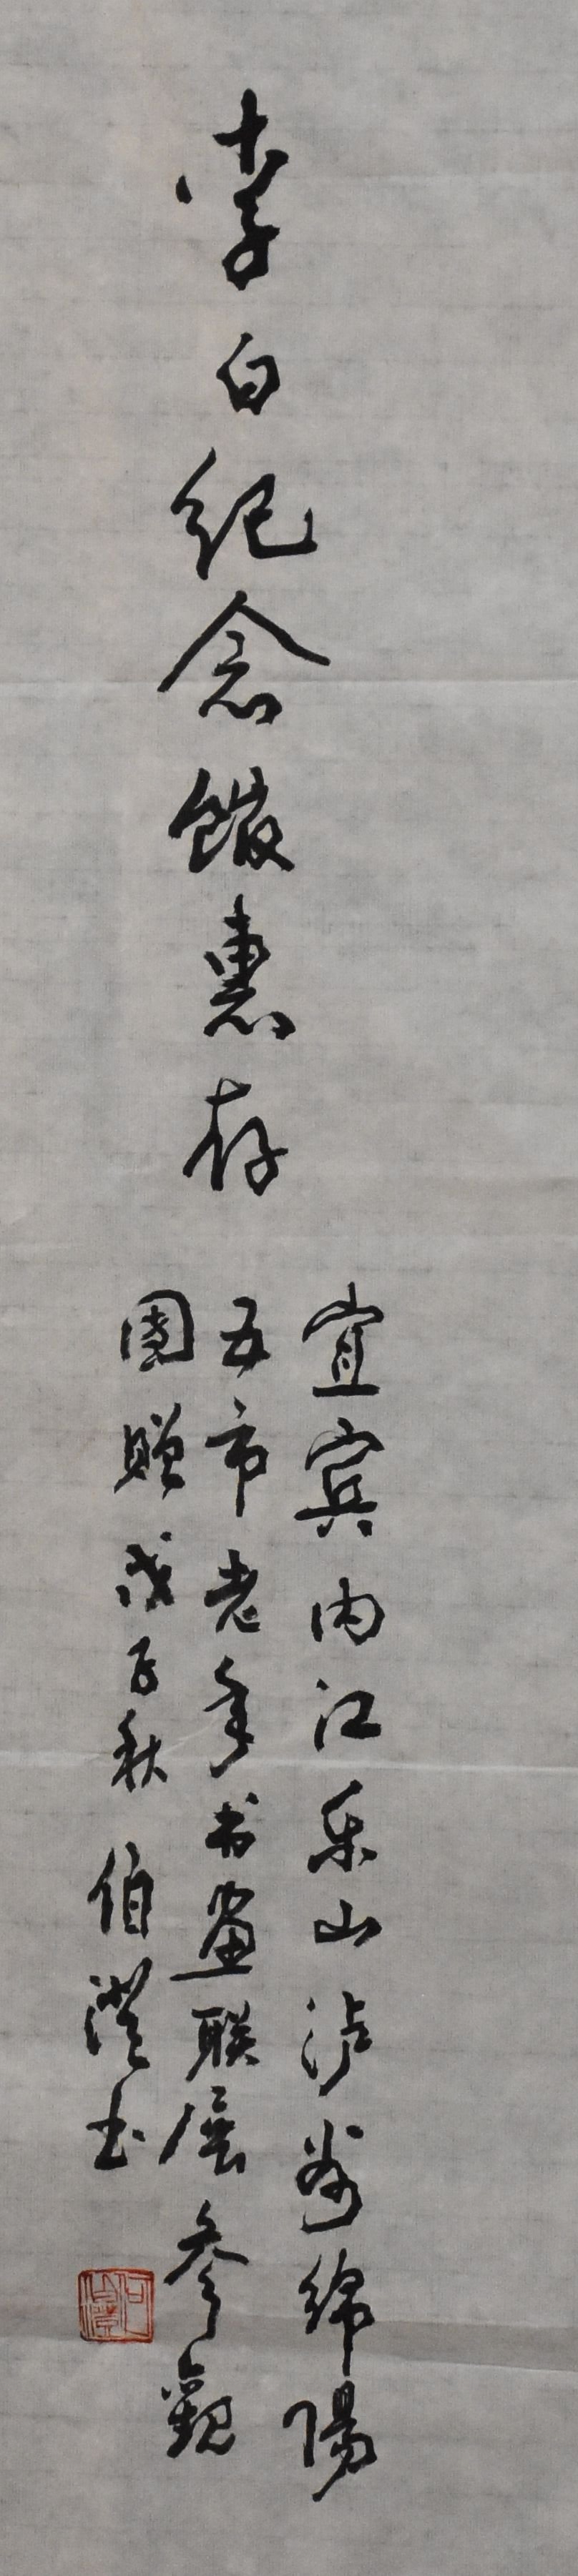 李白纪念馆惠存
宜宾内江乐山泸州绵陽
五市老年书画联展参觀
團赠戊子秋
伯澄书
何伯澄